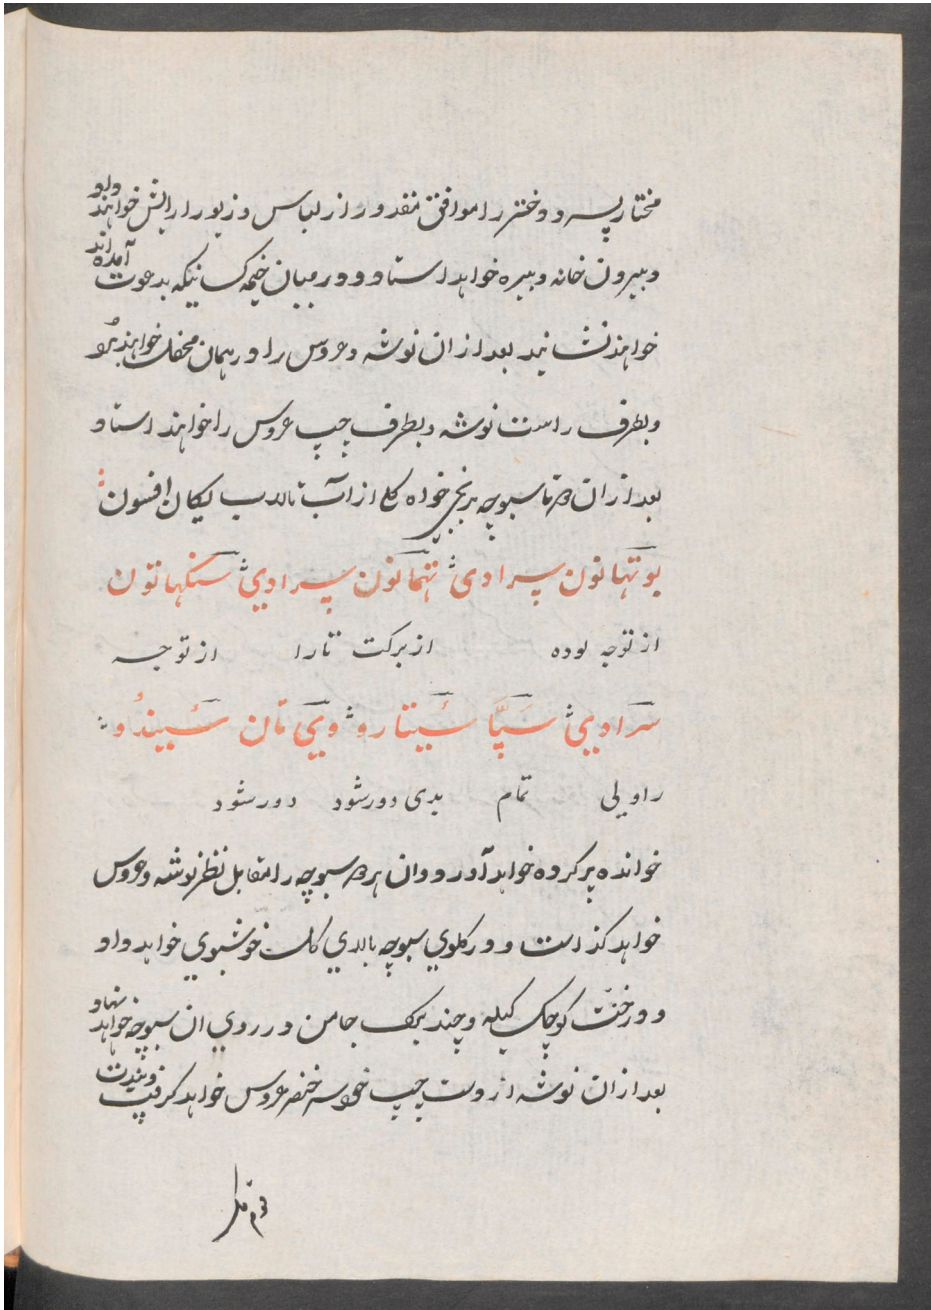 مختار پسر و دختر را موافق مقدور از لباس و زیور ارایش خواهند داد
و بیرون خانه و بیره خواهد استاد و در میان خیمه کسانیکه بدعوت آمده اند
خواهند نشانید بعد ازان نوشه و عروس را در همان محفل خواهند برد
و بطرف راست نوشه و بطرف چپ عروس را خواهند استاد
بعد ازان دو تا سبوچه برنجی خواه گلی از آب تالاب لیکان افسون
بو تتهانون سرادی تتهانون سرادی سنکهانون
از توجه بوده از برکت تارا از توجه
سرادیی سپّا سیتارو ویی تان سیندو
راولی تمام بدی دور شود دور شود
خوانده پر کرده خواهد آورد و ان هر دو سبوچه را مقابل نظر نوشه و عروس
خواهد گذاشت و در گلوی سبوچه بالای گلـ خوشبوی خواهد داد
و درخت کوچک کیله و چند برک جامن در روی ان سبوچه خواهد نهاد
بعد ازان نوشه از دست چپ خود سه خنصر عروس خواهد گرفت و پندت